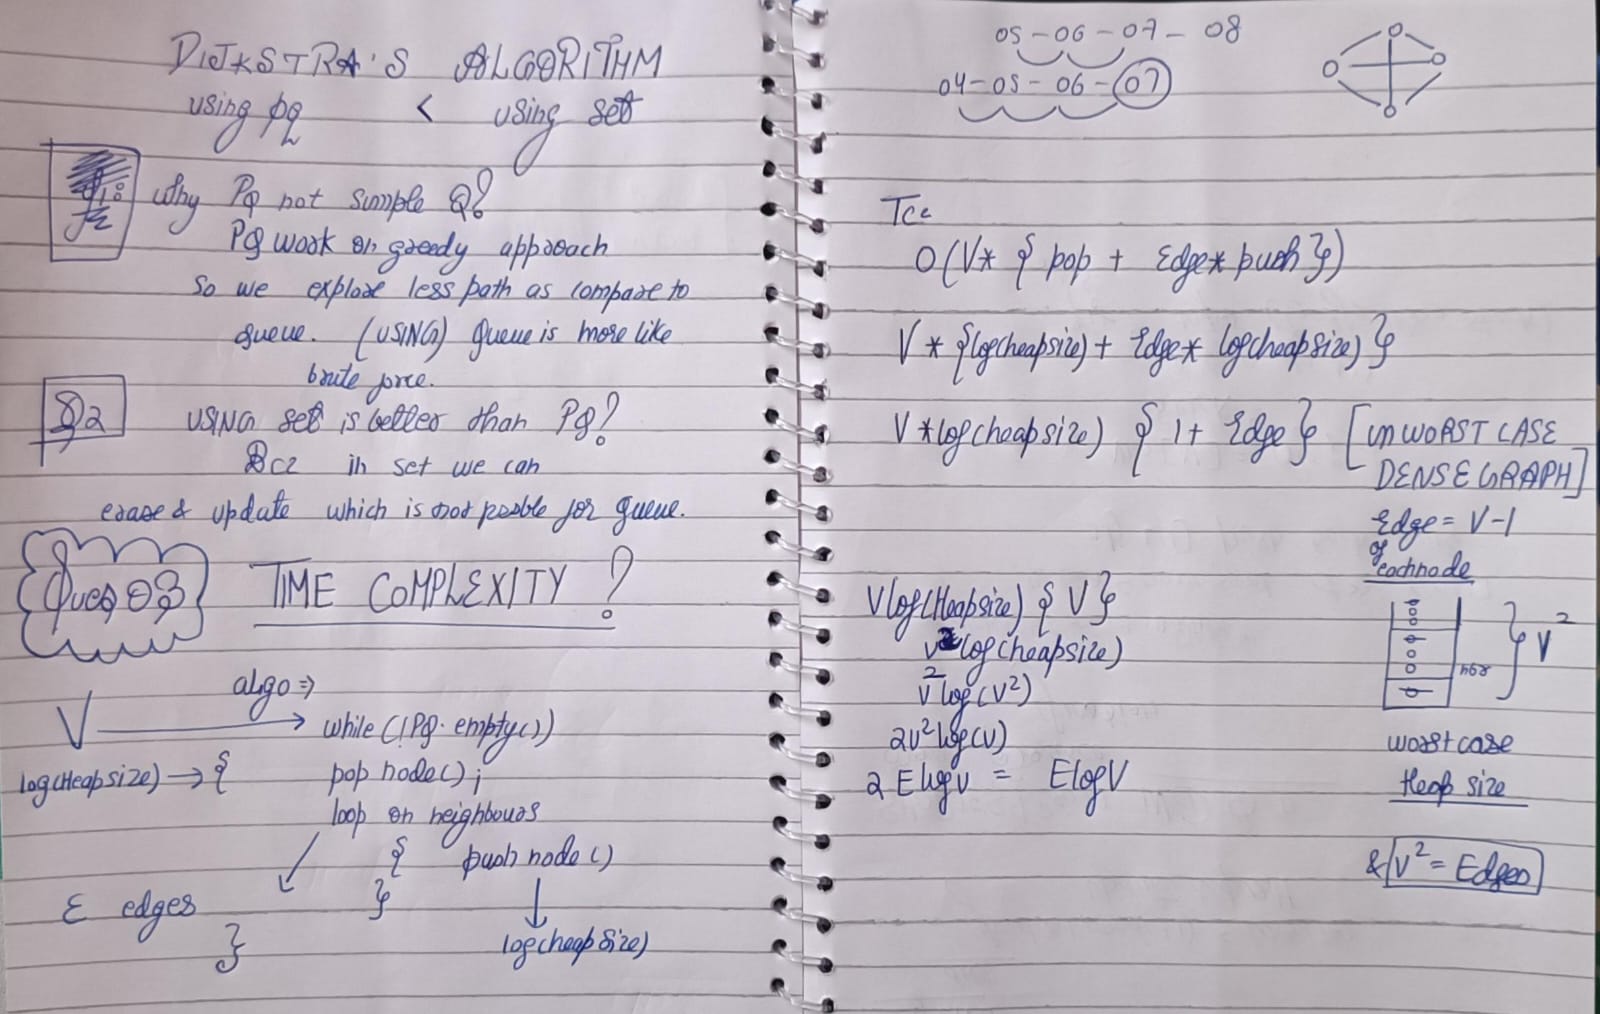 DIJKSTRA'S ALGORITHM
using pq < using set
Why PQ not simple Q?
PQ work on greedy approach
So we explore less path as compare to
queue. (USING) Queue is more like
brute force.
Q2 USING set is better than PQ?
Bcz in set we can
erase & update which is not posble for queue.
Ques 03 TIME COMPLEXITY ?
algo ⇒
V → while(!PQ.empty())
log(Heapsize) → { pop node();
loop on neighbours
{ push node()
E edges }
} log(heapSize)
05 - 06 - 07 - 08
04 - 05 - 06 - 07
TC:
O(V* { pop + Edge* push })
V * {log(heapsize) + Edge* log(heapsize) }
V *log(heapsize) { 1 + Edge } [in WORST CASE
DENSE GRAPH]
Edge = V-1
of eachnode
Vlog(Heapsize) { V }
V² log(heapsize)
V² log(V²)
2V² log(V)
2 E logV = E logV
nbr } V²
worst case
Heap size
& V² = Edges